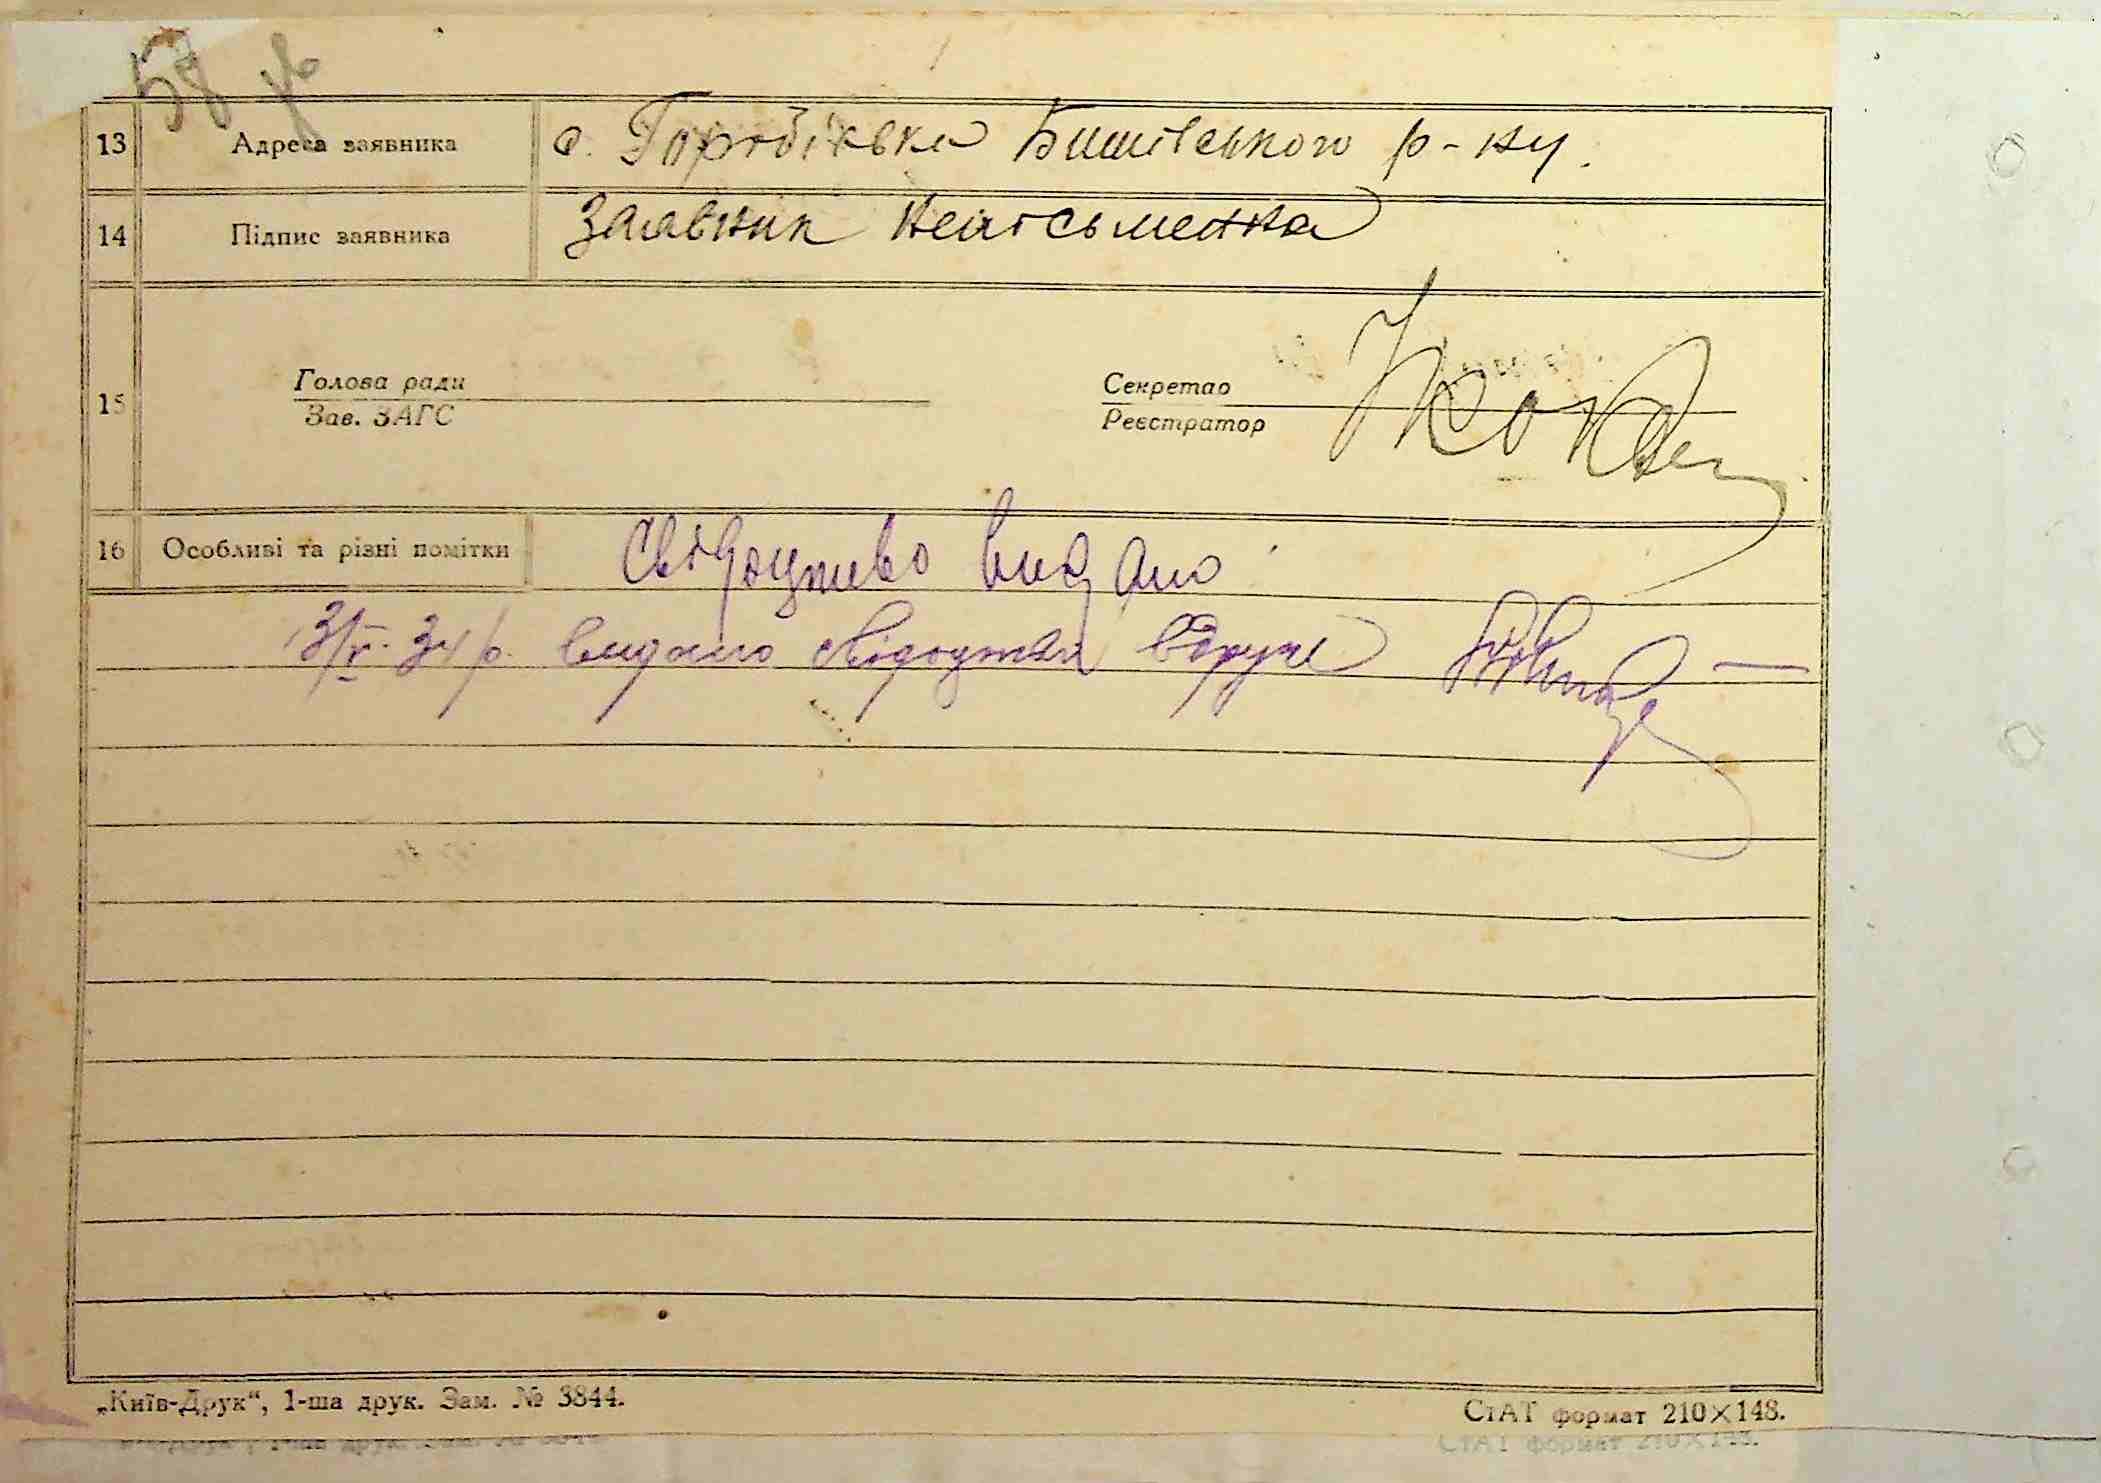 58
13 Адреса заявника с. Горобіївка Бишівського р-ну.
14 Підпис заявника Заявник неписьменна
15 Голова ради
Зав. ЗАГС
Секретар
Реєстратор
16 Особливі та різні помітки Свідоцтво видано
3/V-34 р. видано свідоцтво вдруге
„Київ-Друк“, 1-ша друк. Зам. № 3844.
СтАТ формат 210×148.